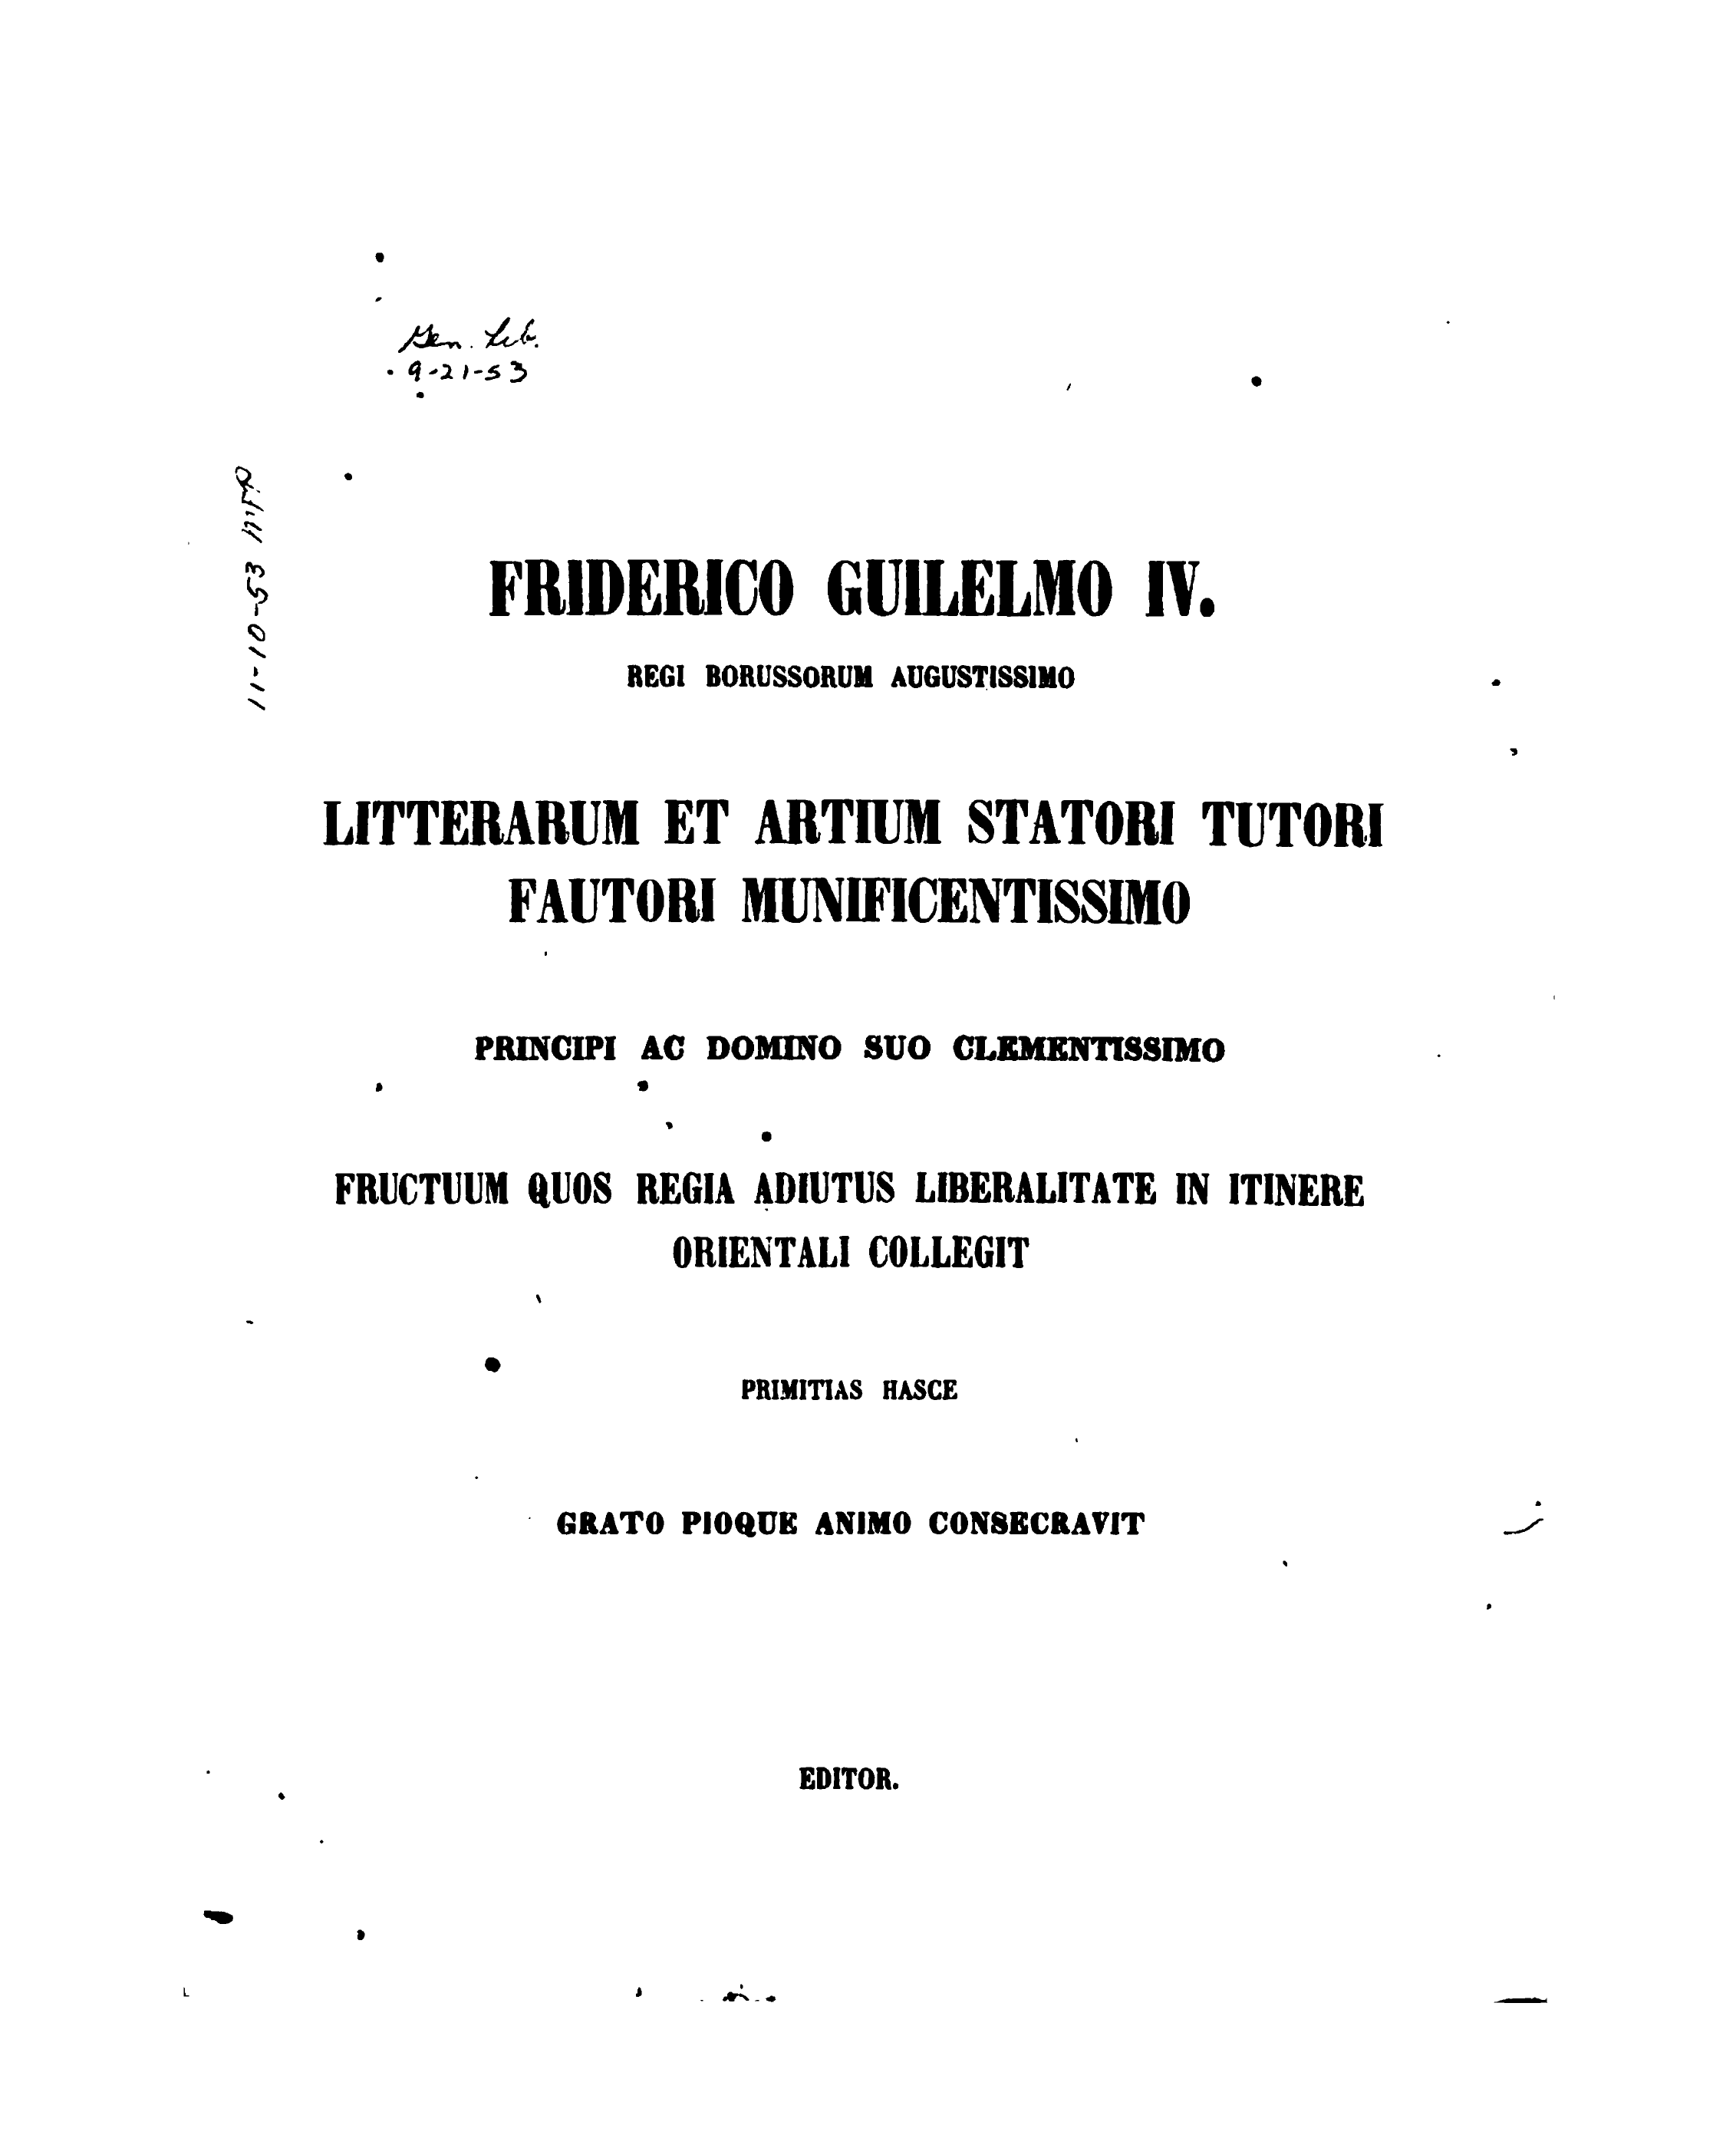 Gen. Lib.
9-21-53
11-10-53 MFP
FRIDERICO GUILELMO IV.
REGI BORUSSORUM AUGUSTISSIMO
LITTERARUM ET ARTIUM STATORI TUTORI
FAUTORI MUNIFICENTISSIMO
PRINCIPI AC DOMINO SUO CLEMENTISSIMO
FRUCTUUM QUOS REGIA ADIUTUS LIBERALITATE IN ITINERE
ORIENTALI COLLEGIT
PRIMITIAS HASCE
GRATO PIOQUE ANIMO CONSECRAVIT
EDITOR.